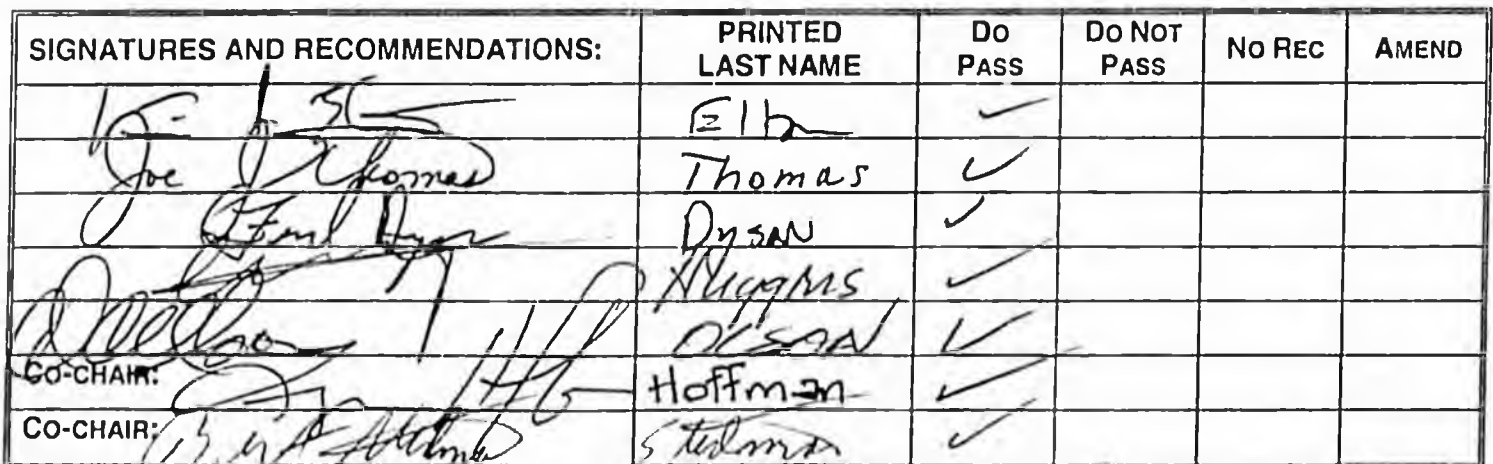 SIGNATURES AND RECOMMENDATIONS: PRINTED LAST NAME DO PASS DO NOT PASS NO REC AMEND
✓
Joe J Thomas Thomas ✓
Dyson ✓
Huggins ✓
Olson ✓
CO-CHAIR: Hoffman ✓
CO-CHAIR: Bert Stedman Stedman ✓